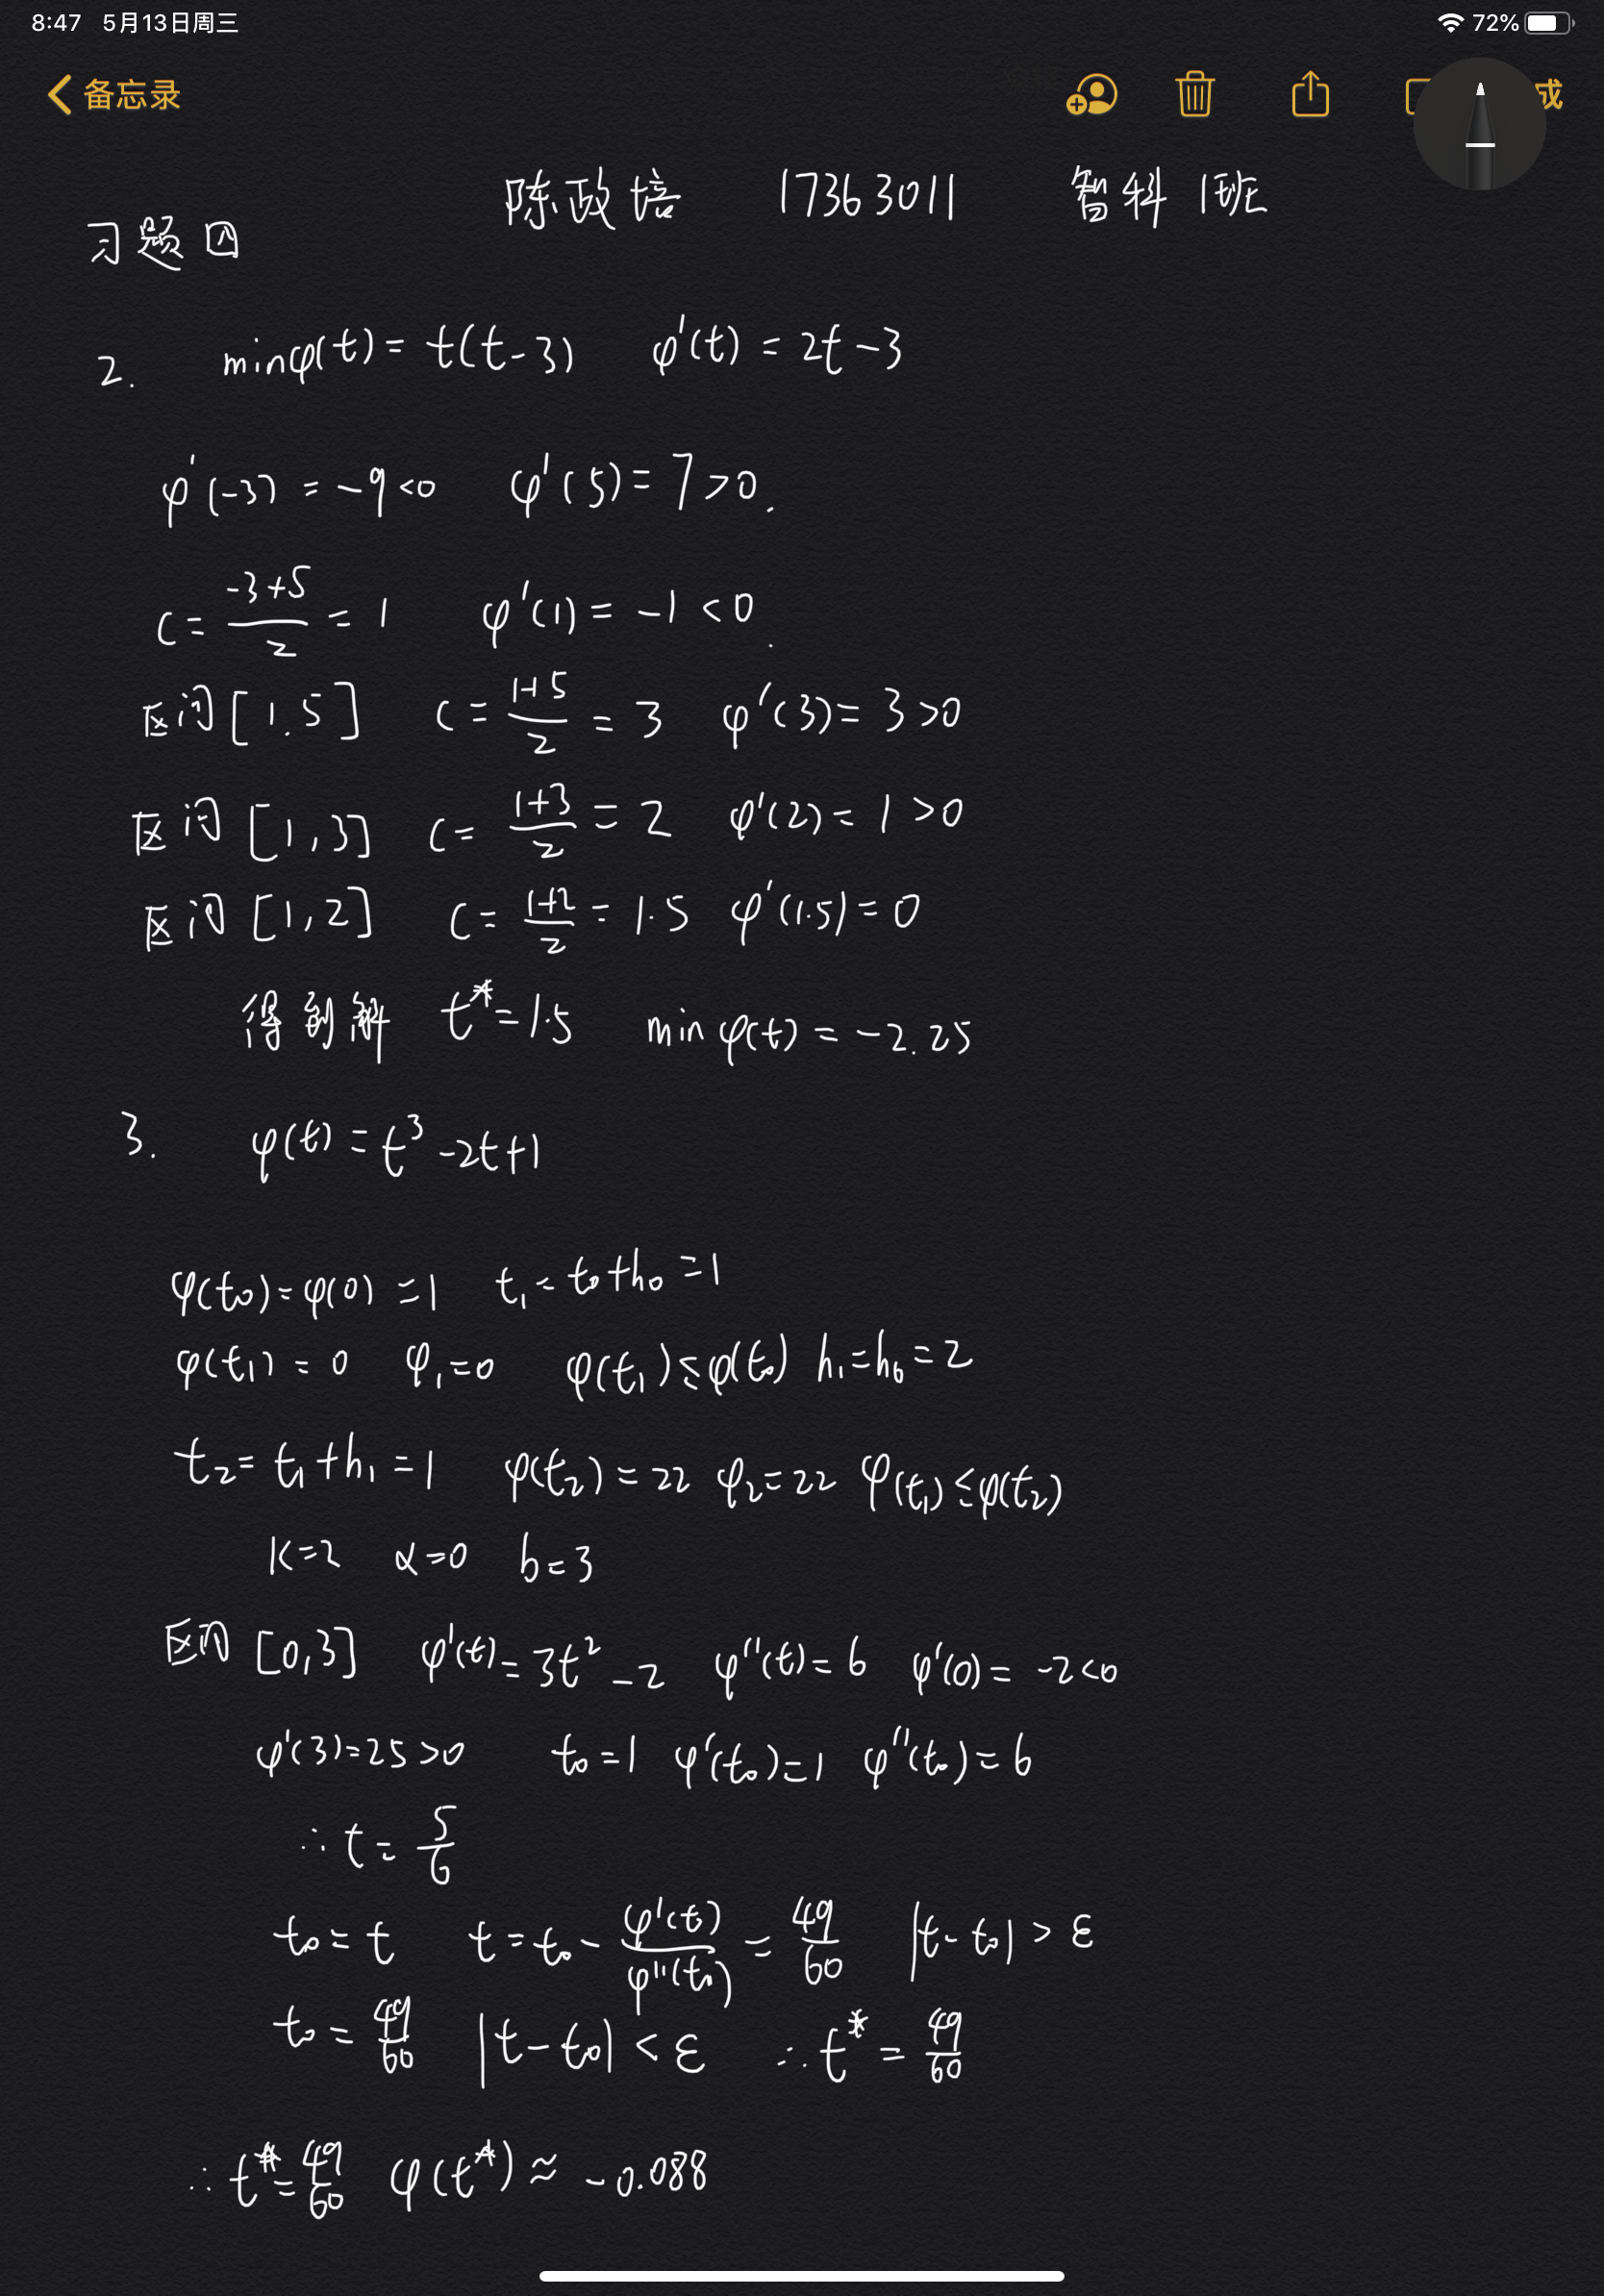 8:47 5月13日周三 72%
备忘录 成
陈政培 17363011 智科1班
习题四
2. minφ(t) = t(t-3) φ'(t) = 2t-3
φ'(-3) = -9<0 φ'(5) = 7>0.
c = \frac{-3+5}{2} = 1 φ'(1) = -1<0.
区间[1.5] c = \frac{1+5}{2} = 3 φ'(3) = 3>0
区间[1,3] c = \frac{1+3}{2} = 2 φ'(2) = 1>0
区间[1,2] c = \frac{1+2}{2} = 1.5 φ'(1.5) = 0
得到解 t* = 1.5 min φ(t) = -2.25
3. φ(t) = t³-2t+1
φ(t₀) = φ(0) = 1 t₁ = t₀+h₀ = 1
φ(t₁) = 0 φ₁=0 φ(t₁)≤φ(t₀) h₁=h₀=2
t₂ = t₁+h₁ = 1 φ(t₂) = 22 φ₂=22 φ(t₁)≤φ(t₂)
k=2 α=0 b=3
区间[0,3] φ'(t) = 3t²-2 φ''(t) = 6 φ'(0) = -2<0
φ'(3)=25>0 t₀=1 φ'(t₀)=1 φ''(t₀)=6
∴ t = \frac{5}{6}
t₀ = t t = t₀ - \frac{φ'(t)}{φ''(t₀)} = \frac{49}{60} |t-t₀| > ε
t₀ = \frac{49}{60} |t-t₀| < ε ∴ t* = \frac{49}{60}
∴ t* = \frac{49}{60} φ(t*) ≈ -0.088